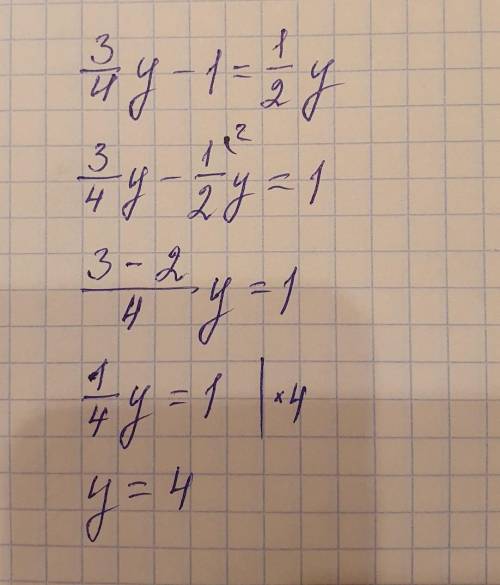 3/4 y - 1 = 1/2 y
3/4 y - 1/2 ⁽² y = 1
(3 - 2)/4 · y = 1
1/4 y = 1 | × 4
y = 4